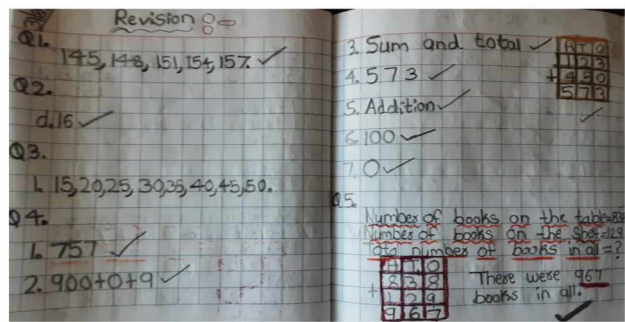 Revision :-
Q1.
145, 148, 151, 154, 157.
Q2.
d. 16
Q3.
1. 15, 20, 25, 30, 35, 40, 45, 50.
Q4.
1. 757
2. 900+0+9
3. Sum and total
H T O
1 2 3
+ 4 5 0
5 7 3
4. 573
5. Addition
6. 100
7. 0
Q5.
Number of books on the table=838
Number of books on the Shef=129
Total number of books in all=?
H T O
8 3 8
+ 1 2 9
9 6 7
There were 967
books in all.